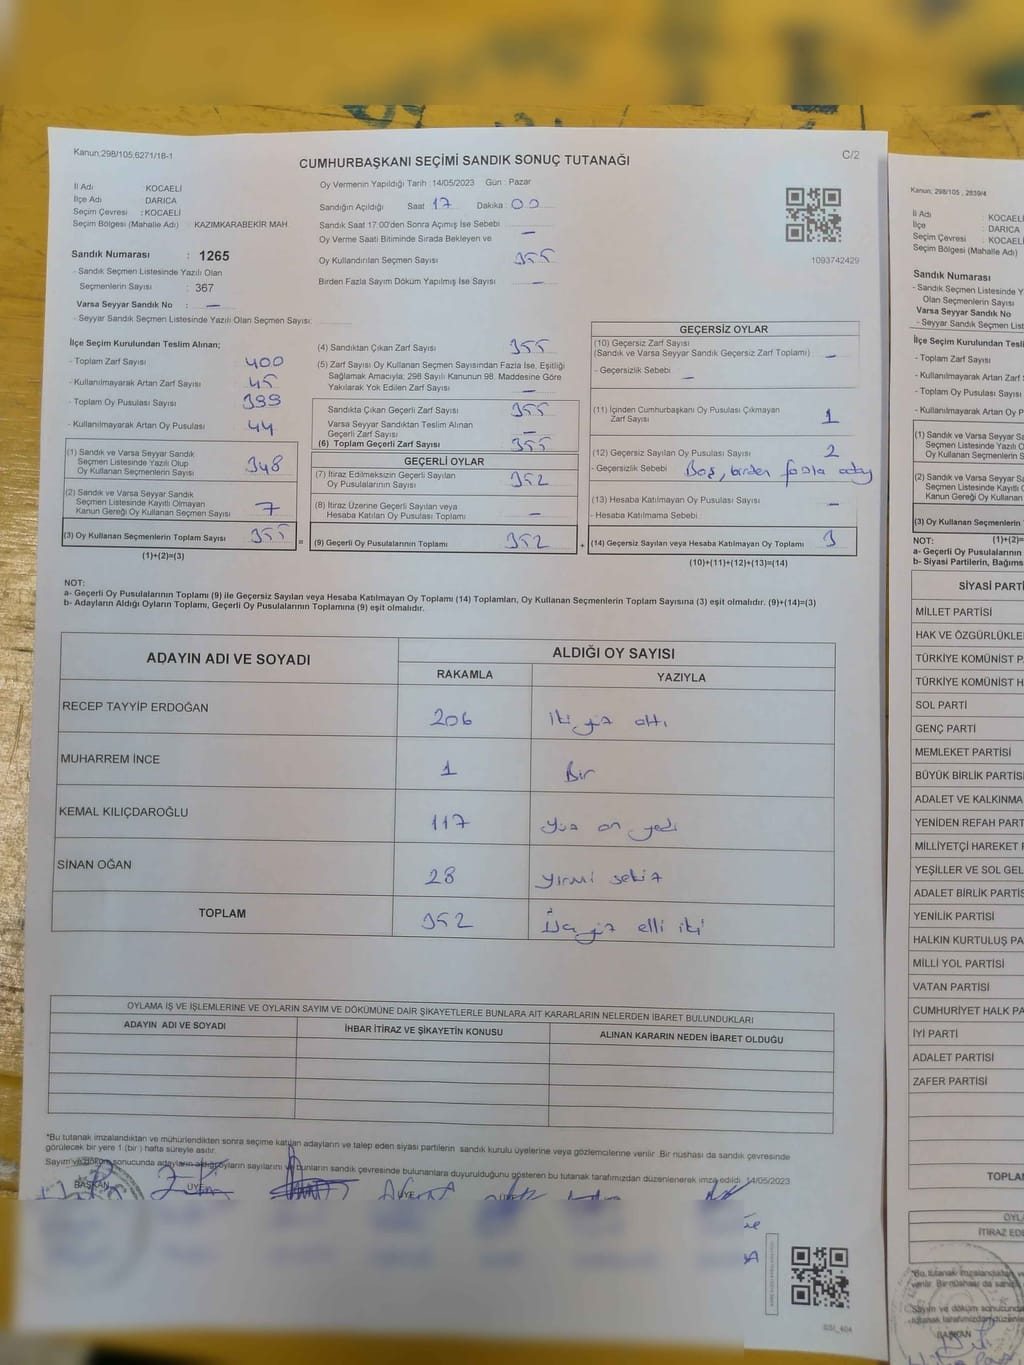 Kanun;298/105,6271/18-1
C/2
CUMHURBAŞKANI SEÇİMİ SANDIK SONUÇ TUTANAĞI
İl Adı : KOCAELİ
İlçe Adı DARICA
Seçim Çevresi : KOCAELİ
Seçim Bölgesi (Mahalle Adı) : KAZIMKARABEKİR MAH
Sandık Numarası : 1265
- Sandık Seçmen Listesinde Yazılı Olan
Seçmenlerin Sayısı : 367
Varsa Seyyar Sandık No : —
- Seyyar Sandık Seçmen Listesinde Yazılı Olan Seçmen Sayısı:
Oy Vermenin Yapıldığı Tarih :14/05/2023 Gün : Pazar
Sandığın Açıldığı Saat 17 Dakika : 00
Sandık Saat 17:00'den Sonra Açılmış İse Sebebi —
Oy Verme Saati Bitiminde Sırada Bekleyen ve
Oy Kullandırılan Seçmen Sayısı 355
Birden Fazla Sayım Döküm Yapılmış İse Sayısı —
1093742429
İlçe Seçim Kurulundan Teslim Alınan;
- Toplam Zarf Sayısı 400
- Kullanılmayarak Artan Zarf Sayısı 45
- Toplam Oy Pusulası Sayısı 399
- Kullanılmayarak Artan Oy Pusulası 44
(1) Sandık ve Varsa Seyyar Sandık
Seçmen Listesinde Yazılı Olup
Oy Kullanan Seçmenlerin Sayısı 348
(2) Sandık ve Varsa Seyyar Sandık
Seçmen Listesinde Kayıtlı Olmayan
Kanun Gereği Oy Kullanan Seçmen Sayısı 7
(3) Oy Kullanan Seçmenlerin Toplam Sayısı 355 =
(1)+(2)=(3)
(4) Sandıktan Çıkan Zarf Sayısı 355
(5) Zarf Sayısı Oy Kullanan Seçmen Sayısından Fazla İse, Eşitliği
Sağlamak Amacıyla; 298 Sayılı Kanunun 98. Maddesine Göre
Yakılarak Yok Edilen Zarf Sayısı —
Sandıkta Çıkan Geçerli Zarf Sayısı 355
Varsa Seyyar Sandıktan Teslim Alınan
Geçerli Zarf Sayısı —
(6) Toplam Geçerli Zarf Sayısı 355
GEÇERLİ OYLAR
(7) İtiraz Edilmeksizin Geçerli Sayılan
Oy Pusulalarının Sayısı 352
(8) İtiraz Üzerine Geçerli Sayılan veya
Hesaba Katılan Oy Pusulası Toplamı —
(9) Geçerli Oy Pusulalarının Toplamı 352 +
GEÇERSİZ OYLAR
(10) Geçersiz Zarf Sayısı
(Sandık ve Varsa Seyyar Sandık Geçersiz Zarf Toplamı) —
- Geçersizlik Sebebi —
(11) İçinden Cumhurbaşkanı Oy Pusulası Çıkmayan
Zarf Sayısı 1
(12) Geçersiz Sayılan Oy Pusulası Sayısı 2
- Geçersizlik Sebebi Boş, birden fazla aday
(13) Hesaba Katılmayan Oy Pusulası Sayısı —
- Hesaba Katılmama Sebebi
(14) Geçersiz Sayılan veya Hesaba Katılmayan Oy Toplamı 3
(10)+(11)+(12)+(13)=(14)
NOT:
a- Geçerli Oy Pusulalarının Toplamı (9) ile Geçersiz Sayılan veya Hesaba Katılmayan Oy Toplamı (14) Toplamları, Oy Kullanan Seçmenlerin Toplam Sayısına (3) eşit olmalıdır. (9)+(14)=(3)
b- Adayların Aldığı Oyların Toplamı, Geçerli Oy Pusulalarının Toplamına (9) eşit olmalıdır.
ADAYIN ADI VE SOYADI
ALDIĞI OY SAYISI
RAKAMLA YAZIYLA
RECEP TAYYİP ERDOĞAN 206 İki yüz altı
MUHARREM İNCE 1 Bir
KEMAL KILIÇDAROĞLU 117 Yüz on yedi
SİNAN OĞAN 28 Yirmi sekiz
TOPLAM 352 Üç yüz elli iki
OYLAMA İŞ VE İŞLEMLERİNE VE OYLARIN SAYIM VE DÖKÜMÜNE DAİR ŞİKAYETLERLE BUNLARA AİT KARARLARIN NELERDEN İBARET BULUNDUKLARI
ADAYIN ADI VE SOYADI İHBAR İTİRAZ VE ŞİKAYETİN KONUSU ALINAN KARARIN NEDEN İBARET OLDUĞU
*Bu tutanak imzalandıktan ve mühürlendikten sonra seçime katılan adayların ve talep eden siyasi partilerin sandık kurulu üyelerine veya gözlemcilerine verilir. Bir nüshası da sandık çevresinde
görülecek bir yere 1 (bir ) hafta süreyle asılır.
Sayım ve döküm sonucunda adayların aldığı oyların sayılarını ve bunların sandık çevresinde bulunanlara duyurulduğunu gösteren bu tutanak tarafımızdan düzenlenerek imza edildi. 14/05/2023
BAŞKAN ÜYE ÜYE
Kanun, 298/105 , 2839/4
İl Adı : KOCAELİ
İlçe : DARICA
Seçim Çevresi : KOCAELİ
Seçim Bölgesi (Mahalle Adı)
Sandık Numarası
- Sandık Seçmen Listesinde Y
Olan Seçmenlerin Sayısı
Varsa Seyyar Sandık No
- Seyyar Sandık Seçmen List
İlçe Seçim Kurulundan Tesli
- Toplam Zarf Sayısı
- Kullanılmayarak Artan Zarf
- Toplam Oy Pusulası Sayısı
- Kullanılmayarak Artan Oy
(1) Sandık ve Varsa Seyyar S
Seçmen Listesinde Yazılı
Oy Kullanan Seçmenlerin
(2) Sandık ve Varsa Seyyar
Seçmen Listesinde Kayıtl
Kanun Gereği Oy Kullanan
(3) Oy Kullanan Seçmenlerin
(1)+(2)=
NOT:
a- Geçerli Oy Pusulalarının
b- Siyasi Partilerin, Bağıms
SİYASİ PARTİ
MİLLET PARTİSİ
HAK VE ÖZGÜRLÜKLE
TÜRKİYE KOMÜNİST P
TÜRKİYE KOMÜNİST H
SOL PARTİ
GENÇ PARTİ
MEMLEKET PARTİSİ
BÜYÜK BİRLİK PARTİSİ
ADALET VE KALKINMA
YENİDEN REFAH PART
MİLLİYETÇİ HAREKET P
YEŞİLLER VE SOL GEL
ADALET BİRLİK PARTİS
YENİLİK PARTİSİ
HALKIN KURTULUŞ PA
MİLLİ YOL PARTİSİ
VATAN PARTİSİ
CUMHURİYET HALK PA
İYİ PARTİ
ADALET PARTİSİ
ZAFER PARTİSİ
TOPLA
OYL
İTİRAZ EDE
BAŞKAN